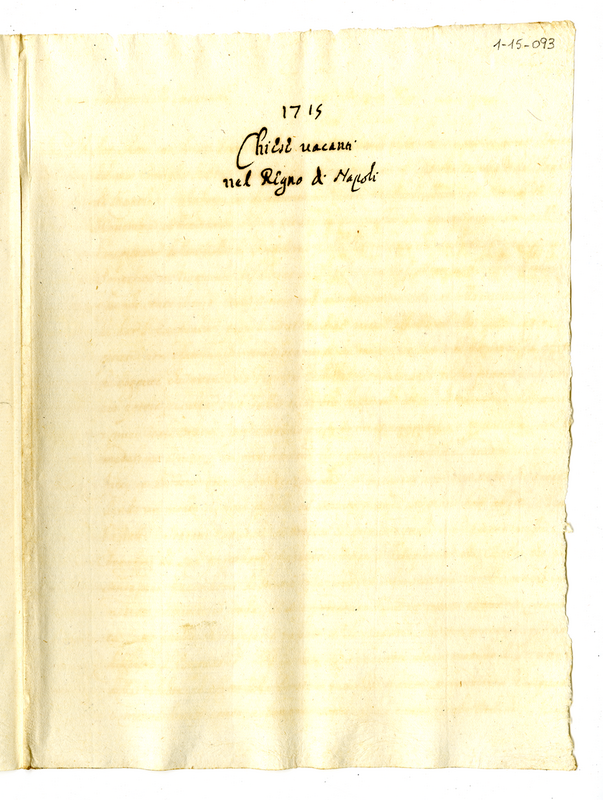 1-15-093
1715
Chiese uacanti
nel Regno di Napoli